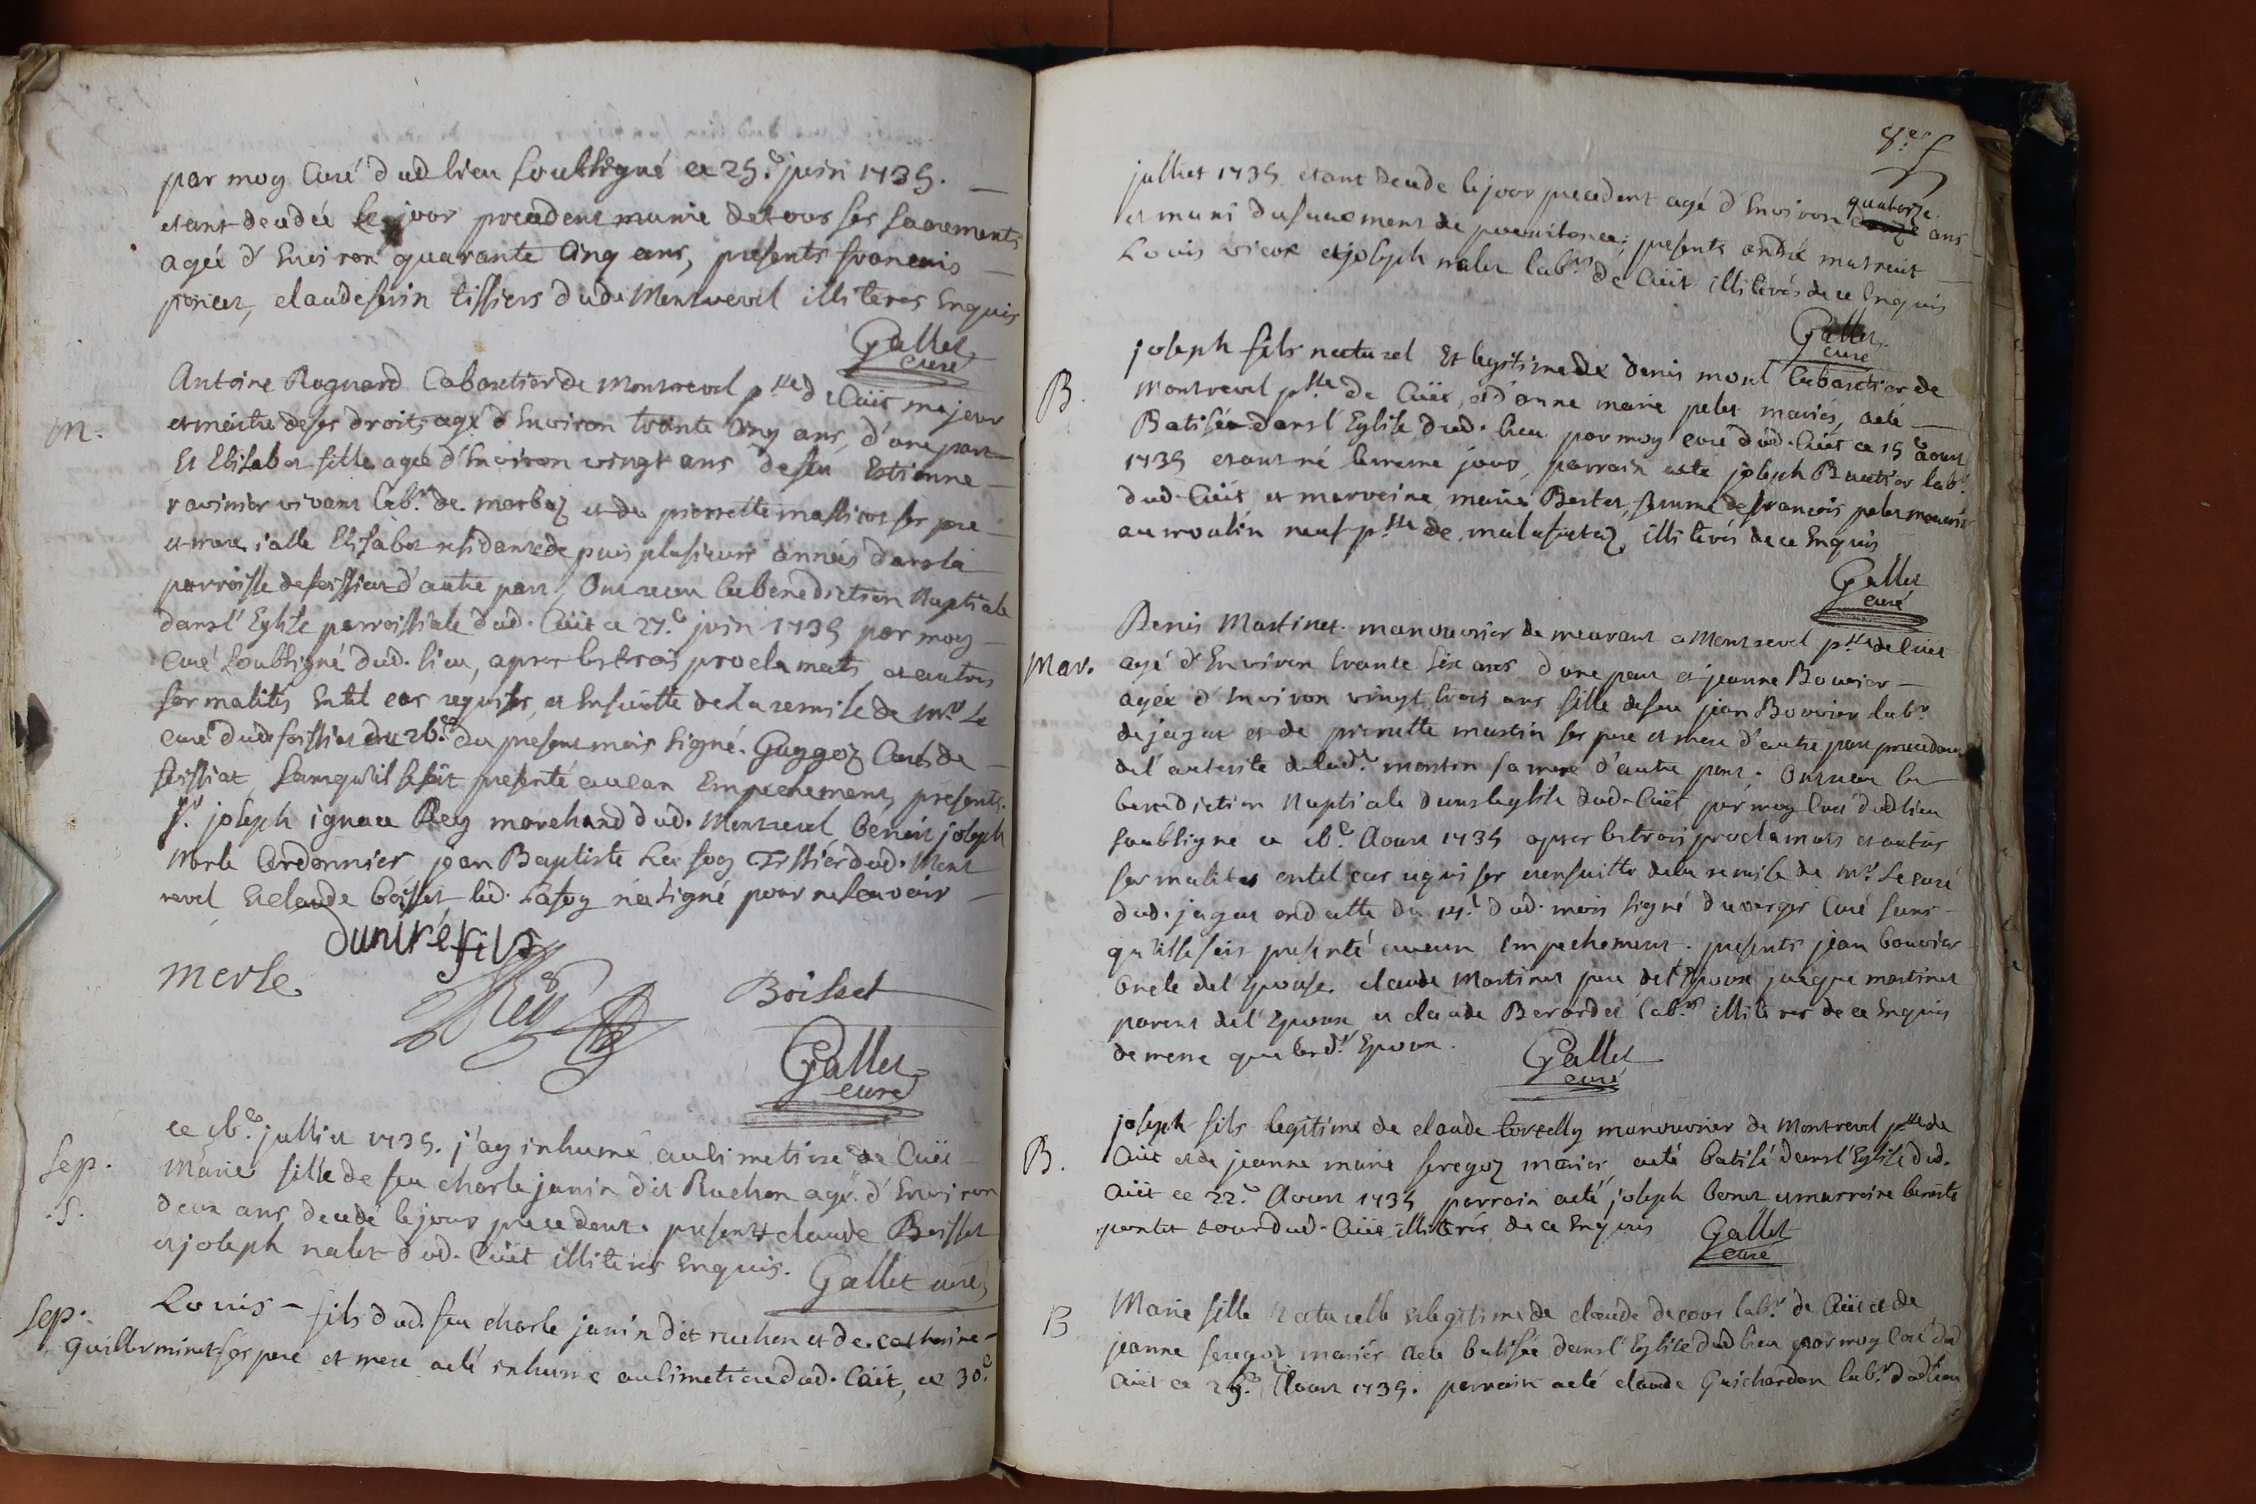 par moy Curé dud lieu soubsigné ce 25.e juin 1735. —
etant decedée le jour precedent munie de tous ses sacrements
agée d'Environ quarante Cinq ans, presents francois —
poncet, claude serin tissiers dud. Montrevel illiteres Enquis
Gallet
curé
M.
Antoine Rognard Cabaretier de Montrevel p.sse de Cuët majeur
et maitre de ses droits agé d'Environ trante Cinq ans, d'une part —
Et Elisabet fille agée d'Environ vingt ans de feu Estienne —
ravinier vivant lab.r de marboz et de pierrette massicot ses pere —
et mere, i'elle Elisabet residante depuis plusieurs années dans la —
parroisse de foissiat d'autre part, Ont receu la benediction Nuptiale
dans l'Eglise parroissiale dud. Cüet ce 27.e juin 1735 par moy —
Curé soubsigné dud. lieu, apres les trois proclamats, et autres
formalités En tel cas requises, et Ensuitte de la remise de M.r Le
curé dud foissiat du 26.e du present mois signé. Guygoz Curé de —
foissiat, sans qu'il se soit presenté aucun Empechement, presents.
s.r joseph ignace Rey marchand dud. Montrevel, benoit joseph
Merle Cordonnier, jean Baptiste La foy Tissier dud. Mont
revel Et claude boisset led. Lafoy n'a signé pour ne scavoir —
duniré fils
merle
Rey
Boisset
Gallet
curé
Sep.
.S.
ce 16.e julliet 1735. j'ay inhumé au Cimetiere de Cüet —
Marie fille de feu charle janin dit Ruchon agée d'Environ
deux ans decedé le jour precedent. presents claude Boisset
et joseph nalet dud. Cüet illiterés Enquis. Gallet curé
Sep.
Louis — fils dud. feu charle janin dit ruchon et de catherine —
Guillerminet ses pere et mere a eté inhumé au Cimetiere dud. Cüet, ce 30.e
8.e f
julliet 1735 etant decedé le jour precedent agé d'Environ quatorze ans
et muni du sacrement de penitence; presents andré
Louis vieux et joseph nalet lab.rs de Cüet illiterés de ce Enquis
Gallet
curé
B.
joseph fils naturel Et legitime de denis moul Cabaretier de
Montrevel p.sse de Cüet, et d'anne marie pelet mariés, a eté —
Batisé dans l'Eglise dud. lieu par moy curé dud. Cüet ce 15.e aout
1735 etant né le meme jour, parrain a eté joseph Buatier lab.r
dud. Cüet et marreine marie Bertet, femme de francois pelet meunier
au moulin neuf p.sse de malafretaz, illiterés de ce Enquis
Gallet
curé
Mar.
Denis Martinet. manouvrier demeurant a Montrevel p.sse de Cüet
agé d'Environ trante six ans d'une part et jeanne Bouvier —
agée d'Environ vingt trois ans fille de feu jean Bouvier lab.r
de jayat et de pierrette martin ses pere et mere d'autre part procedant
de l'autorité de lad.e martin sa mere d'autre part. Ont receu la —
benediction Nuptiale dans l'eglise dud. Cüet par moy Curé dud lieu
soubsigné ce 16.e Aoust 1735 apres les trois proclamats et autres
formalités en tel cas requises et ensuitte de la remise de M.r Le curé
dud. jayat en datte du 14.e dud. mois signé duverger Curé sans —
qu'il se soit presenté aucun Empechement. presents jean bouvier
oncle de l'Epouse. claude Martinet pere de l'Epoux jacque martinet
parent de l'Epoux et claude Berardet lab.rs illiteres de ce Enquis
de meme que lesd.s Epoux.
Gallet
curé
B.
joseph fils legitime de claude manouvrier de Montrevel p.sse de
Cüet et de jeanne marie feregoz mariés, a eté batisé dans l'Eglise dud.
Cüet ce 22.e Aoust 1735 parrain a eté joseph benet et marreine benoite
pontet tous dud. Cüet illiterés de ce Enquis
Gallet
curé
B
Marie fille Naturelle et legitime de claude decour lab.r de Cüet et de
jeanne feregoz mariés a eté batisée dans l'Eglise dud lieu par moy Curé dud
Cüet ce 25.e Aoust 1735. parrain a eté claude Guichardon lab.r dud lieu